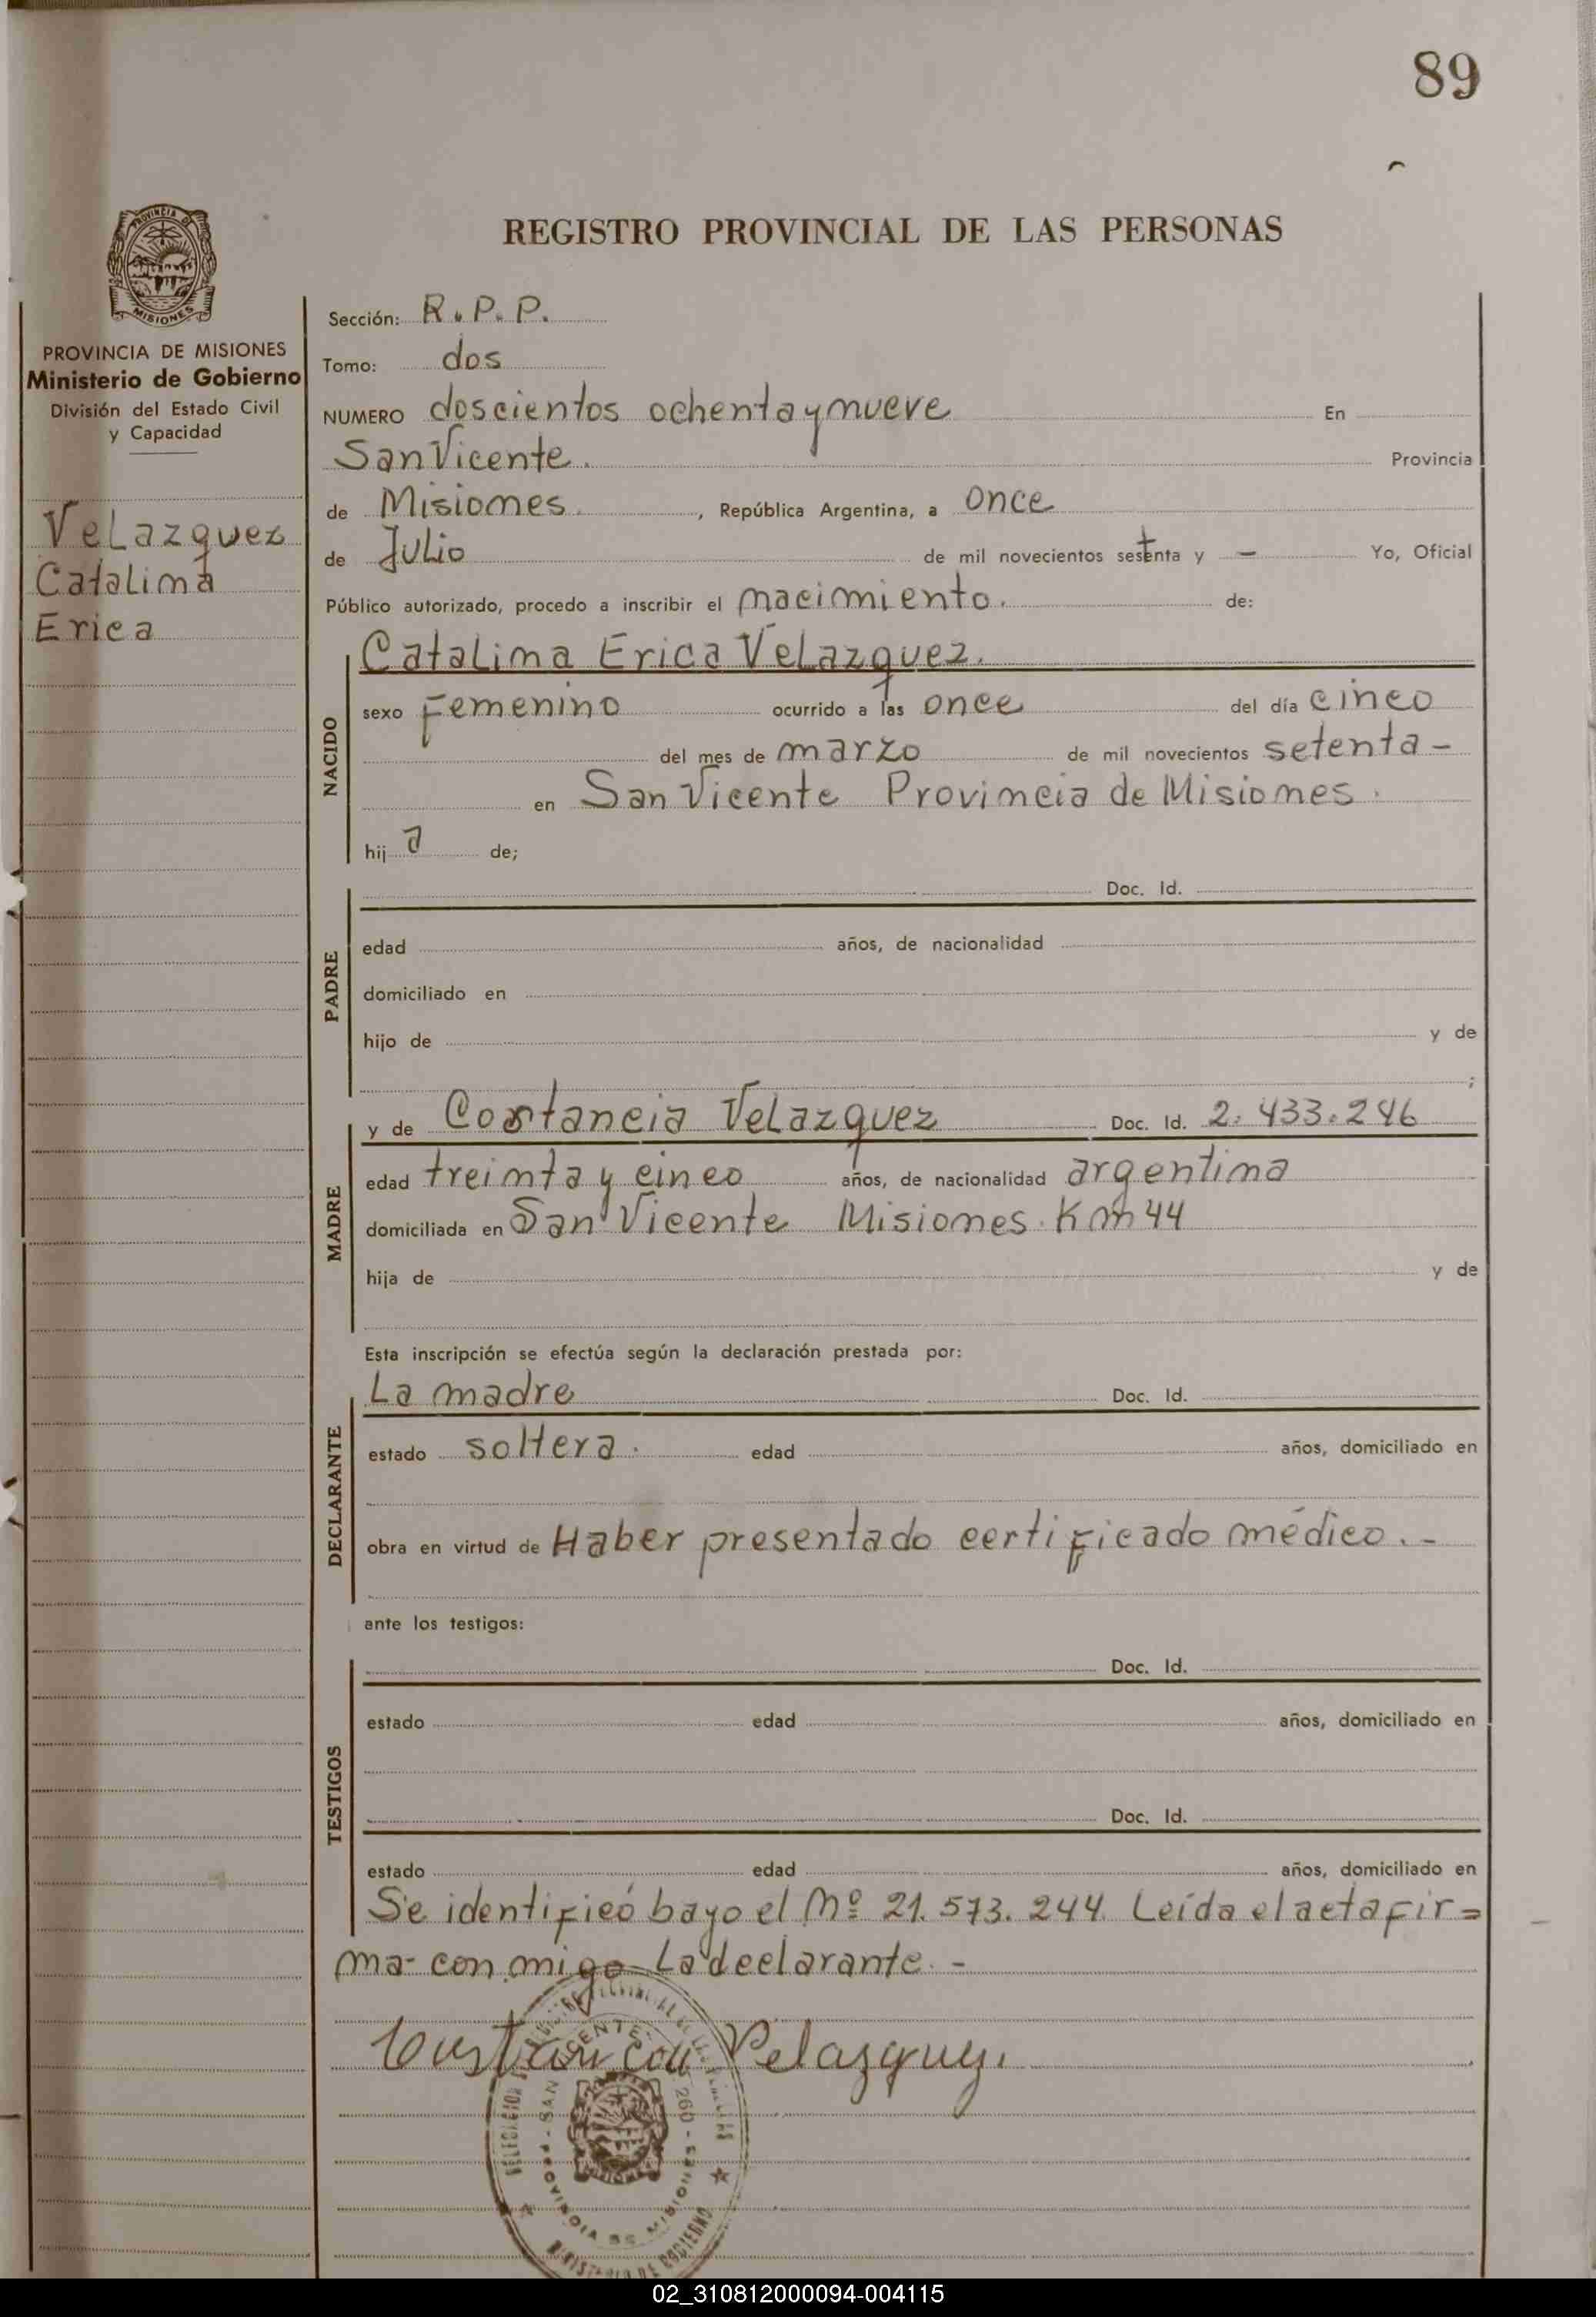 89
REGISTRO PROVINCIAL DE LAS PERSONAS
PROVINCIA DE MISIONES
Ministerio de Gobierno
División del Estado Civil
y Capacidad
Velazquez
Catalina
Erica
Sección: R. P. P.
Tomo: dos
NUMERO doscientos ochenta y nueve En
San Vicente. Provincia
de Misiones, República Argentina, a once
de Julio de mil novecientos setenta y - Yo, Oficial
Público autorizado, procedo a inscribir el nacimiento. de:
NACIDO
Catalina Erica Velazquez.
sexo Femenino ocurrido a las once del día cinco
del mes de marzo de mil novecientos setenta -
en San Vicente Provincia de Misiones.
hij a de;
PADRE
Doc. Id.
edad años, de nacionalidad
domiciliado en
hijo de y de
;
MADRE
y de Costancia Velazquez Doc. Id. 2.433.246
edad treinta y cinco años, de nacionalidad argentina
domiciliada en San Vicente Misiones Km 44
hija de y de
Esta inscripción se efectúa según la declaración prestada por:
DECLARANTE
La madre Doc. Id.
estado soltera. edad años, domiciliado en
obra en virtud de Haber presentado certificado médico. -
ante los testigos:
TESTIGOS
Doc. Id.
estado edad años, domiciliado en
Doc. Id.
estado edad años, domiciliado en
Se identificó bayo el Nº 21.573.244. Leída el acta fir=
ma con migo La declarante. -
Velazquez.
PROVINCIA DE MISIONES
MINISTERIO DE GOBIERNO
02_310812000094-004115